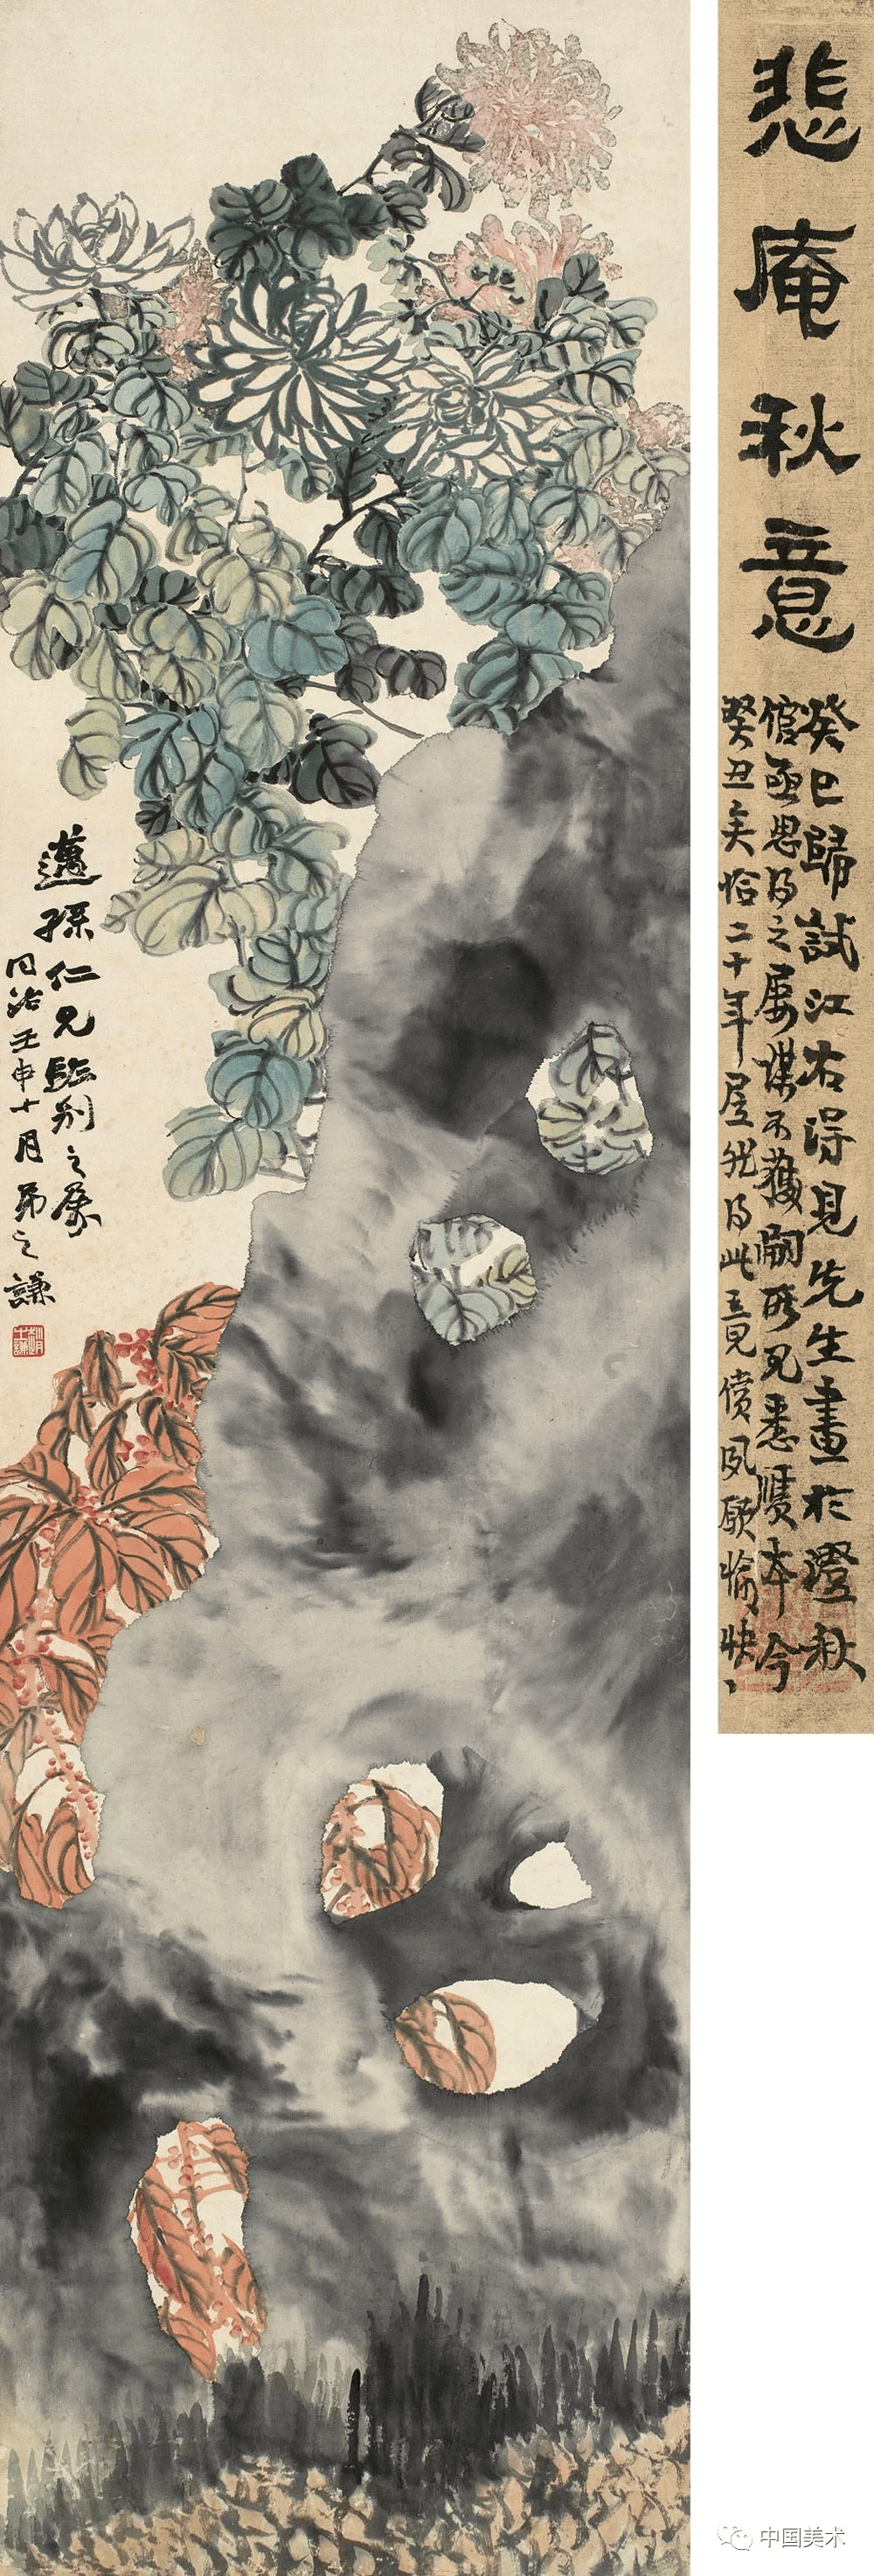 悲庵秋意
癸巳歸試江右得見先生畫於澄秋
館亟思得之屢謀不獲嗣所見悉贋本今
癸丑矣恰二十年屋於得此三見償夙願愉快
邁孫仁兄臨別之屬
同治壬申十月弟之謙
趙之謙
中国美术